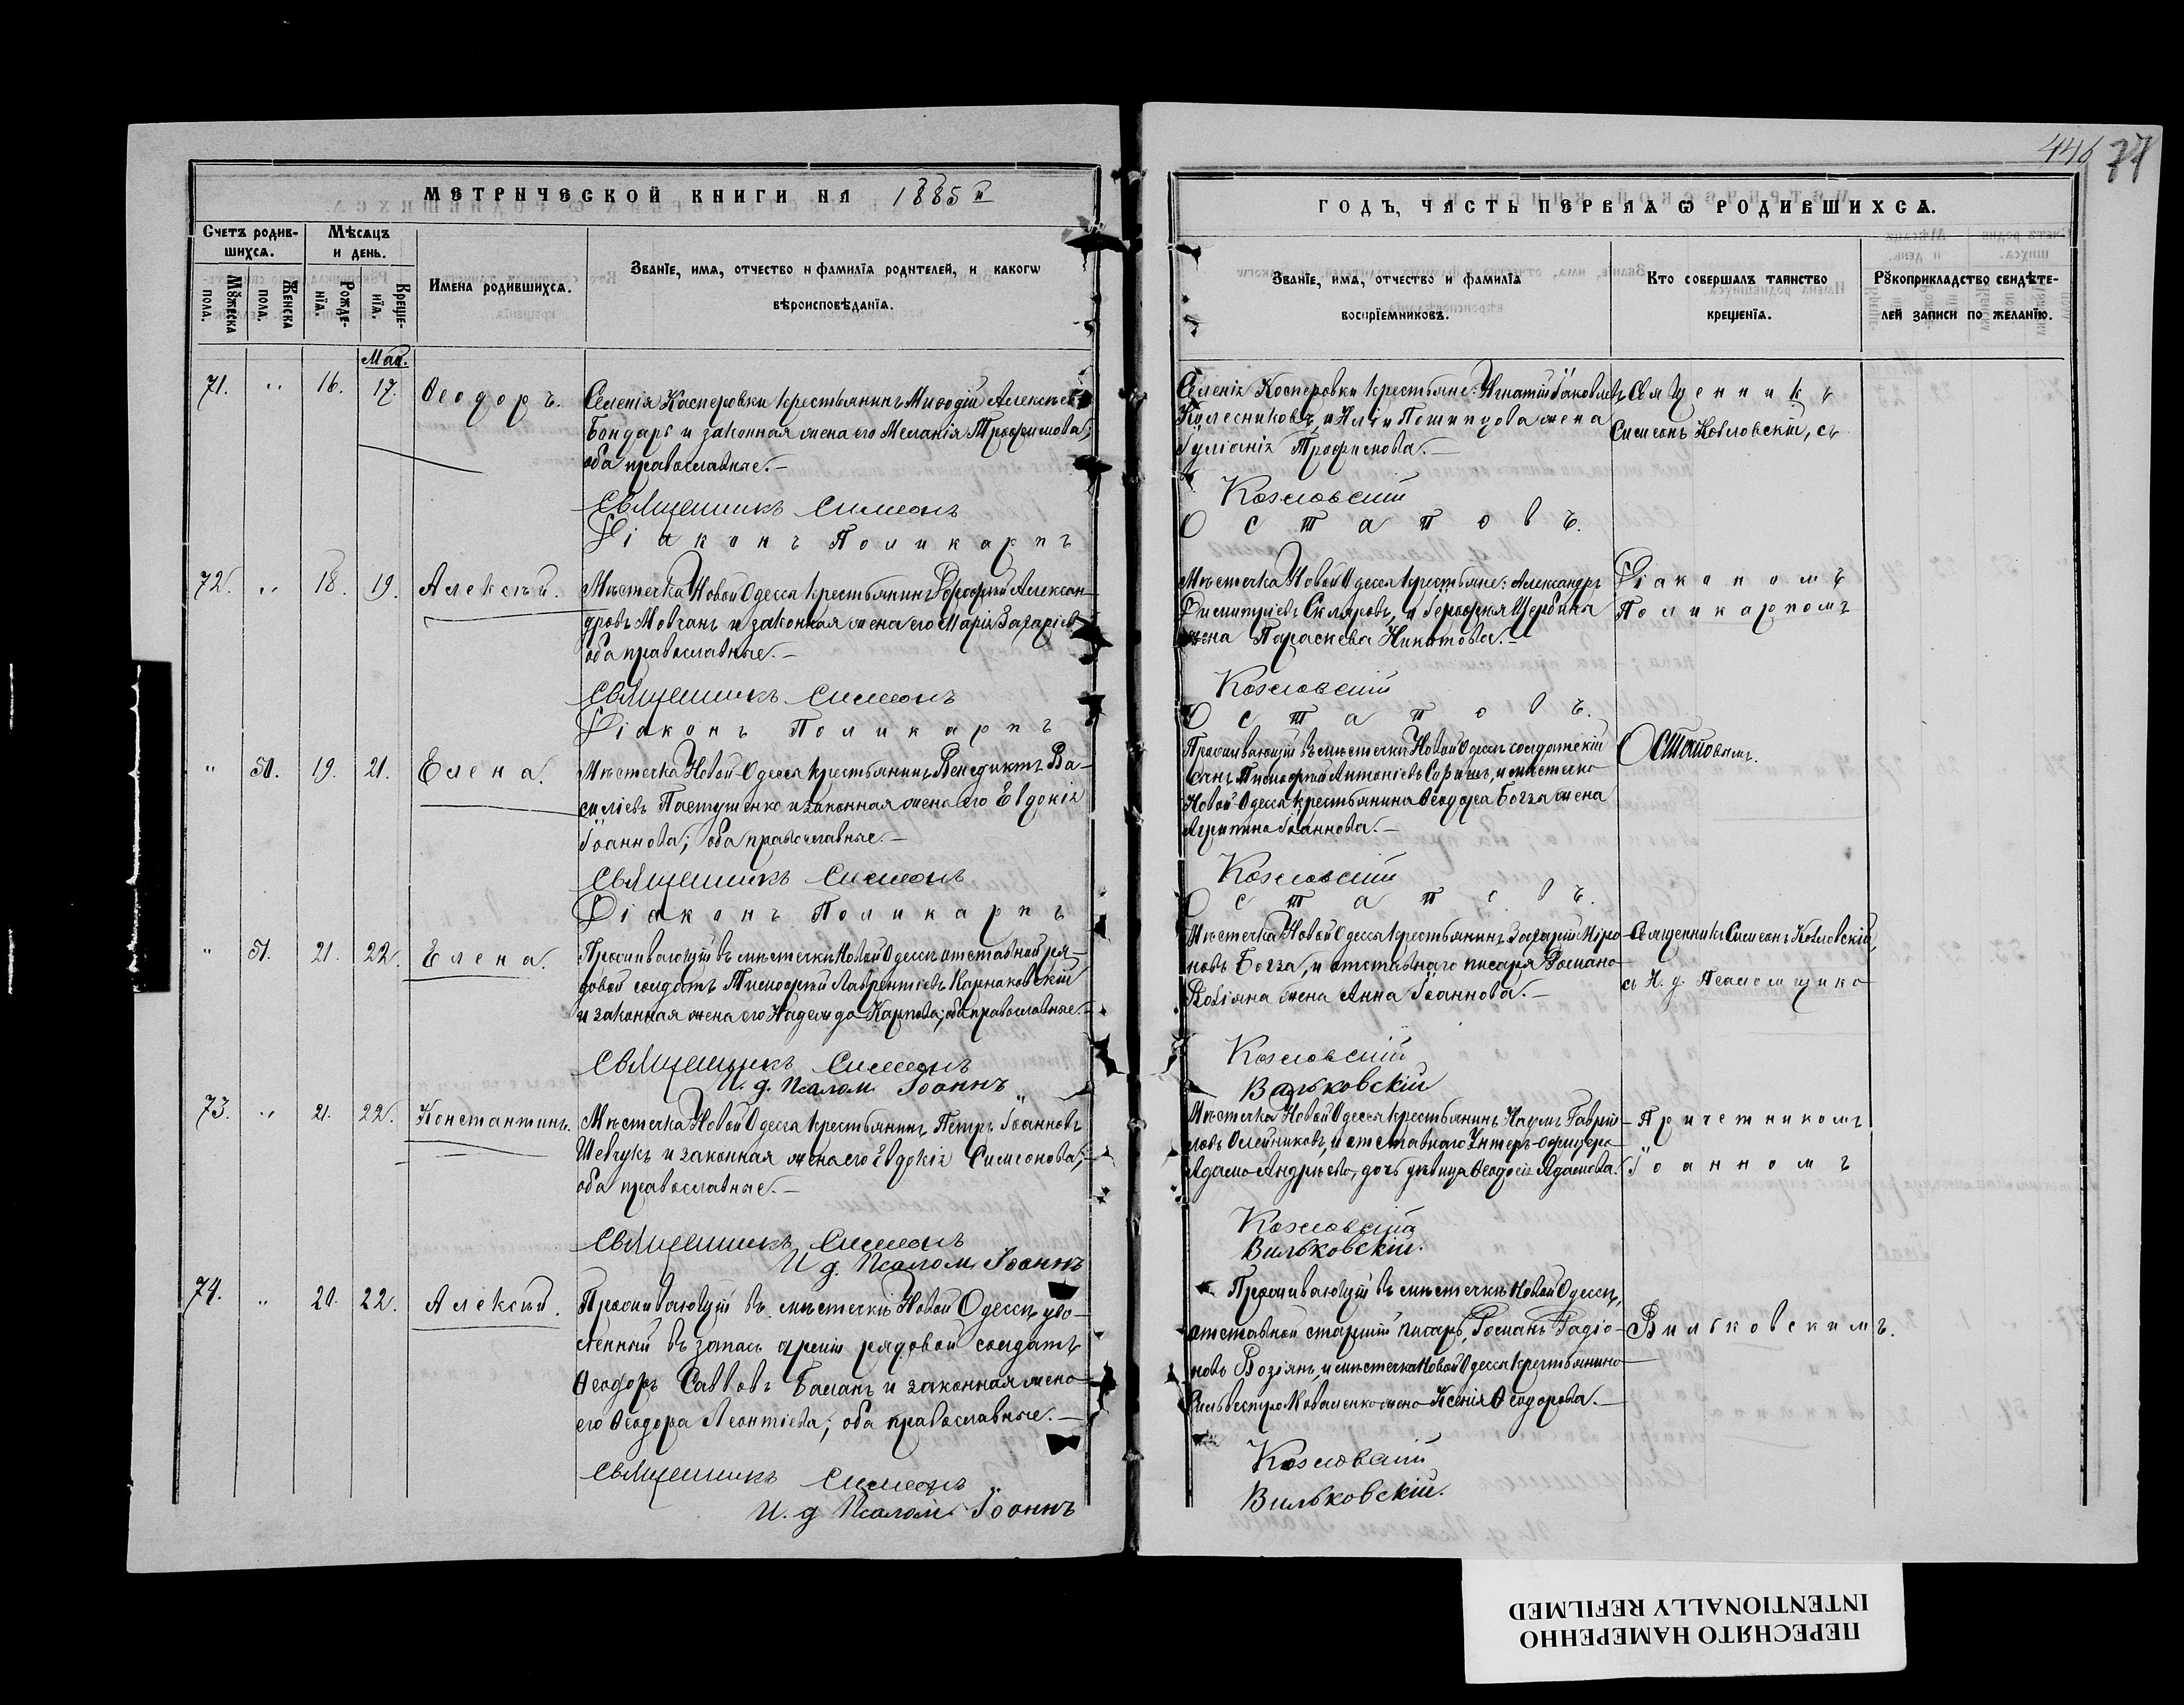 446 71
МЕТРИЧЕСКОЙ КНИГИ НА 1885 й
ГОДЪ, ЧАСТЬ ПЕРВАЯ Ѡ РОДИВШИХСѦ.
Счетъ родив-
шихсѧ.
Мѣсѧцъ
и день.
Мꙋжеска пола.
Женска пола.
Рожде-
нїѧ.
Креще-
нїѧ.
Имена родившихсѧ.
Званїе, имѧ, отчество и фамилїѧ родителей, и какогѡ
вѣроисповѣданїѧ.
Званїе, имѧ, отчество и фамилїѧ
воспрїемниковъ.
Кто совершалъ таинство
крещенїѧ.
Рꙋкоприкладство свидѣте-
лей записи по желанїю.
Маа.
71. " 16. 17. Ѳеодоръ.
Селенія Касперовки крестьянинъ Миѳодій Алексѣевъ
Бондарь и законная жена его Меланія Трофимова;
оба православные.—
Священникъ Симеонъ
Діаконъ Поликарпъ
Селенія Касперовки крестьяне: Игнатій Іаковлевъ
Колесниковъ, и Иліи жена
Іуліанія Трофимова.—
Козловскій
Остаповъ.
Священникъ
Симеонъ Козловскій, съ
72. " 18. 19. Алексѣй.
Мѣстечка Новой Одессы крестьянинъ Алексан-
дровъ Мовчанъ и законная жена его Марія Захаріева
оба православные.—
Священникъ Симеонъ
Діаконъ Поликарпъ
Мѣстечка Новой Одессы крестьяне: Александръ
Димитріевъ Скляровъ, и Щербины
жена Параскева Никитова.—
Козловскій
Остаповъ.
Діакономъ
Поликарпомъ
" 50. 19. 21. Елена.
Мѣстечка Новой-Одессы крестьянинъ Венедиктъ Ва-
силіевъ Пастушенко и законная жена его Евдокія
Іоаннова; оба православные.—
Священникъ Симеонъ
Діаконъ Поликарпъ
Проживающій въ мѣстечкѣ Новой Одессѣ солдатскій
сынъ Тимоѳей Антоніевъ и мѣстечка
Новой-Одессы крестьянина Ѳеодора Богза жена
Агрипина Іоаннова.—
Козловскій
Остаповъ.
Остаповымъ.
" 51. 21. 22. Елена.
Проживающій въ мѣстечкѣ Новой Одессѣ отставной ря-
довой солдатъ Тимоѳей Лаврентіевъ Карнаковскій
и законная жена его Надежда Карпова; оба православные.—
Священникъ Симеонъ
И. д. Псалом. Іоаннъ
Мѣстечка Новой Одессы крестьянинъ Захарій Міро-
новъ Богза, и отставнаго писаря Романа
Возіяна жена Анна Іоаннова.—
Козловскій
Вильковскій
Священникъ Симеонъ Козловскій,
съ И. д. Псаломщика
73. " 21. 22. Константинъ.
Мѣстечка Новой Одессы крестьянинъ Петръ Іоанновъ
Шевчукъ и законная жена его Евдокія Симеонова;
оба православные.—
Священникъ Симеонъ
И д. Псалом. Іоаннъ
Мѣстечка Новой Одессы крестьянинъ Наумъ Гаврiи-
ловъ Олейниковъ, и отставнаго Унтеръ-офицера
Адама Андреева, дочь дѣвица Ѳеодосія Адамова.
Козловскій
Вильковскій.
Причетникомъ
Іоанномъ
74. " 20. 22. Алексѣй.
Проживающій въ мѣстечкѣ Новой Одессѣ уво-
ленный въ запасъ арміи рядовой солдатъ
Ѳеодоръ Саввовъ Баланъ и законная жена
его Ѳеодора Леонтіева; оба православные.—
Священникъ Симеонъ
И. д Псалом. Іоаннъ
Проживающій въ мѣстечкѣ Новой Одессѣ,
отставной старшій писарь, Романъ Радіо-
новъ Возіянъ, и мѣстечка Новой Одессы крестьянина
Сильвестра Коваленко жена Ксенія Ѳеодорова.—
Козловскій
Вильковскій.
Вильковскимъ.
ПЕРЕСНЯТО НАМЕРЕННО
INTENTIONALLY REFILMED